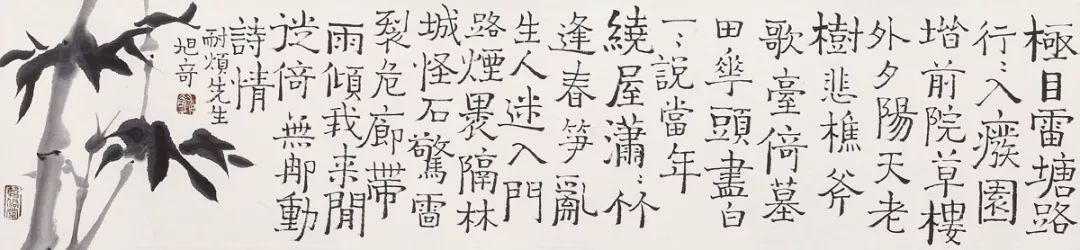 極目雷塘路
行〻入癈園
堦前院草樓
外夕陽天老
樹悲樵斧
歌臺倚墓
田華頭盡白
一〻說當年
繞屋瀟〻竹
逢春笋亂
生人迷入門
路煙褁隔林
城怪石驚雷
裂危廊帶
雨傾我来閒
徙倚無那動
詩情
耐煩先生
旭奇